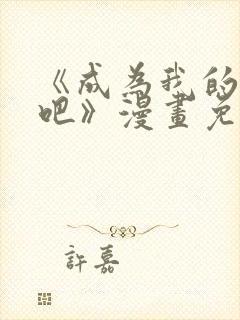 《成为我的
吧》漫畫免
許嘉